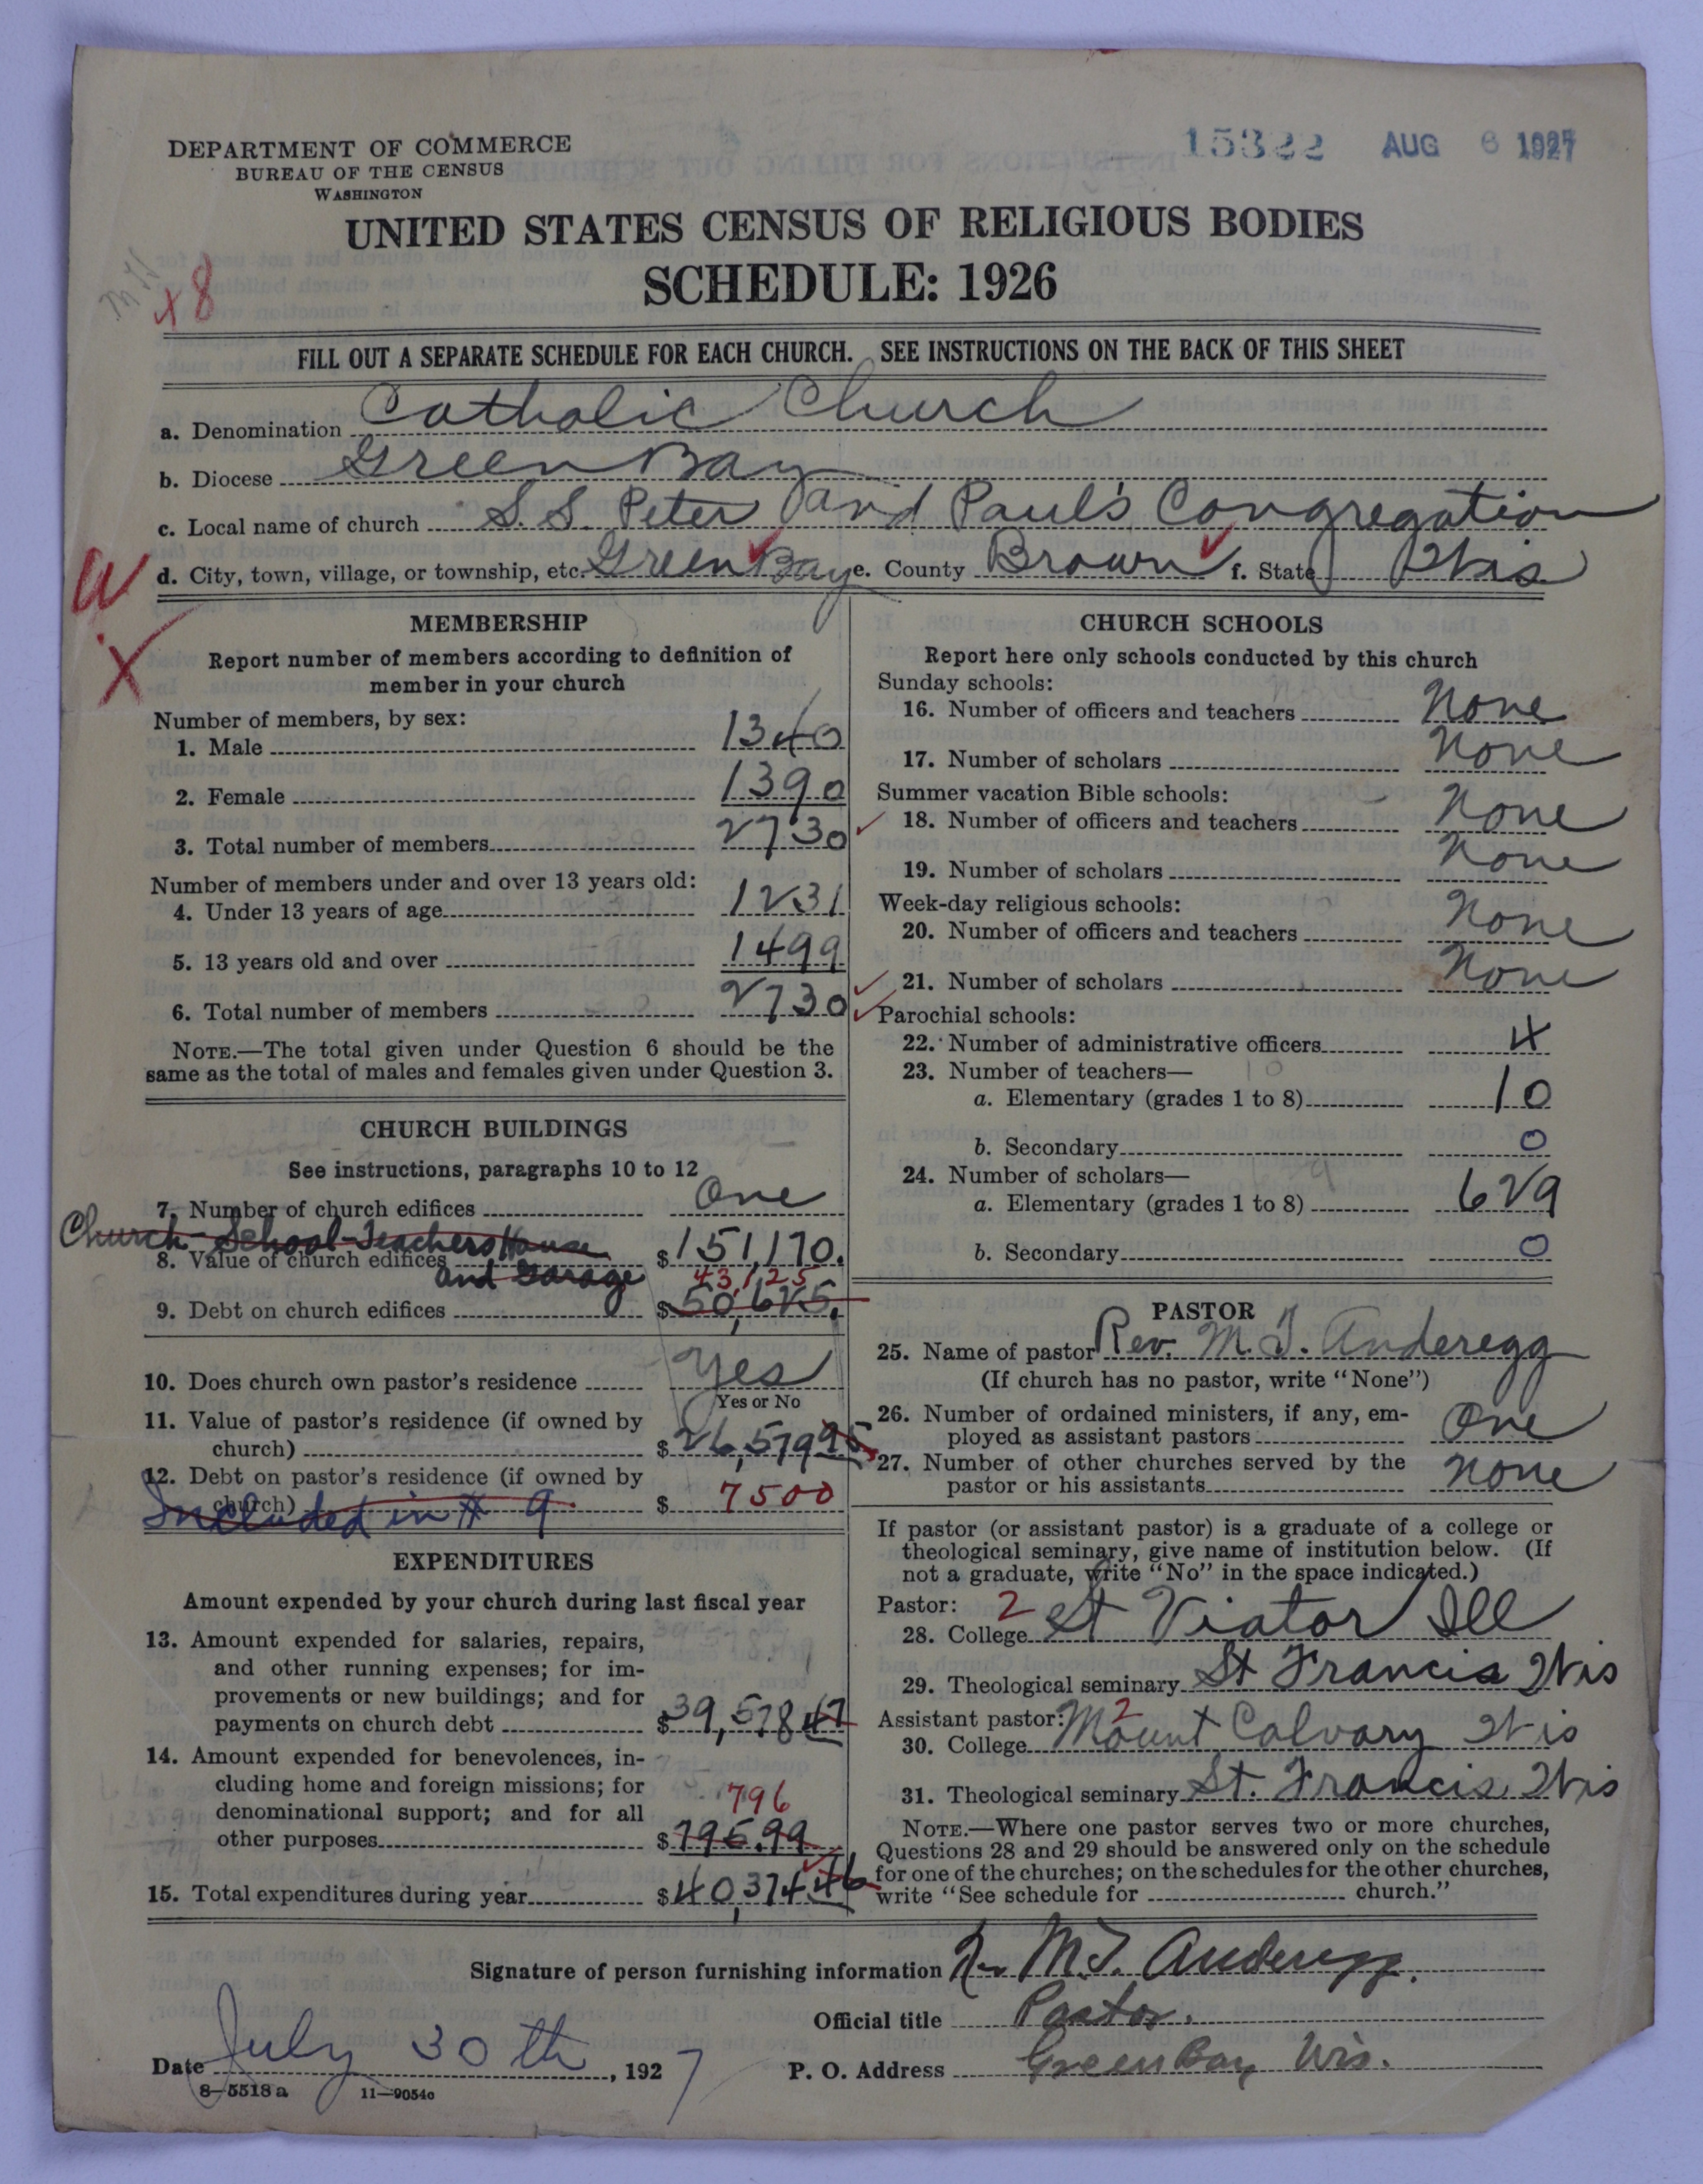 15322 AUG 6 1927
DEPARTMENT OF COMMERCE
BUREAU OF THE CENSUS
WASHINGTON
UNITED STATES CENSUS OF RELIGIOUS BODIES
SCHEDULE: 1926
x8
FILL OUT A SEPARATE SCHEDULE FOR EACH CHURCH. SEE INSTRUCTIONS ON THE BACK OF THIS SHEET
a. Denomination Catholic Church
b. Diocese Green Bay
c. Local name of church S. S. Peter and Paul's Congregation
W d. City, town, village, or township, etc. Green Bay e. County Brown f. State Wis
X
MEMBERSHIP
Report number of members according to definition of
member in your church
Number of members, by sex:
1. Male 1340
2. Female 1390
3. Total number of members 2730
Number of members under and over 13 years old:
4. Under 13 years of age 1231
5. 13 years old and over 1499
6. Total number of members 2730
NOTE.—The total given under Question 6 should be the
same as the total of males and females given under Question 3.
CHURCH BUILDINGS
See instructions, paragraphs 10 to 12
7. Number of church edifices One
Church - School - Teachers House
8. Value of church edifices $151,170.
and Garage
43,125
9. Debt on church edifices $50,625.
10. Does church own pastor's residence Yes
Yes or No
11. Value of pastor's residence (if owned by
church) $26,579 95
12. Debt on pastor's residence (if owned by
church) $ 7500
Included in # 9
EXPENDITURES
Amount expended by your church during last fiscal year
13. Amount expended for salaries, repairs,
and other running expenses; for im-
provements or new buildings; and for
payments on church debt $39,578 47
14. Amount expended for benevolences, in-
cluding home and foreign missions; for
denominational support; and for all 796
other purposes $795.99
15. Total expenditures during year $40,374.46
CHURCH SCHOOLS
Report here only schools conducted by this church
Sunday schools:
16. Number of officers and teachers None
17. Number of scholars None
Summer vacation Bible schools:
18. Number of officers and teachers None
19. Number of scholars None
Week-day religious schools:
20. Number of officers and teachers None
21. Number of scholars None
Parochial schools:
22. Number of administrative officers 4
23. Number of teachers—
a. Elementary (grades 1 to 8) 10
b. Secondary 0
24. Number of scholars—
a. Elementary (grades 1 to 8) 629
b. Secondary 0
PASTOR
25. Name of pastor Rev. M. J. Anderegg
(If church has no pastor, write "None")
26. Number of ordained ministers, if any, em-
ployed as assistant pastors One
27. Number of other churches served by the
pastor or his assistants None
If pastor (or assistant pastor) is a graduate of a college or
theological seminary, give name of institution below. (If
not a graduate, write "No" in the space indicated.)
Pastor: 2
28. College St Viator Ill
29. Theological seminary St Francis Wis
Assistant pastor: 2
30. College Mount Calvary Wis
31. Theological seminary St. Francis Wis
NOTE.—Where one pastor serves two or more churches,
Questions 28 and 29 should be answered only on the schedule
for one of the churches; on the schedules for the other churches,
write "See schedule for church."
Signature of person furnishing information Rev M. J. Anderegg.
Official title Pastor.
Date July 30th, 1927 P. O. Address Green Bay Wis.
8—5518 a 11—9054c